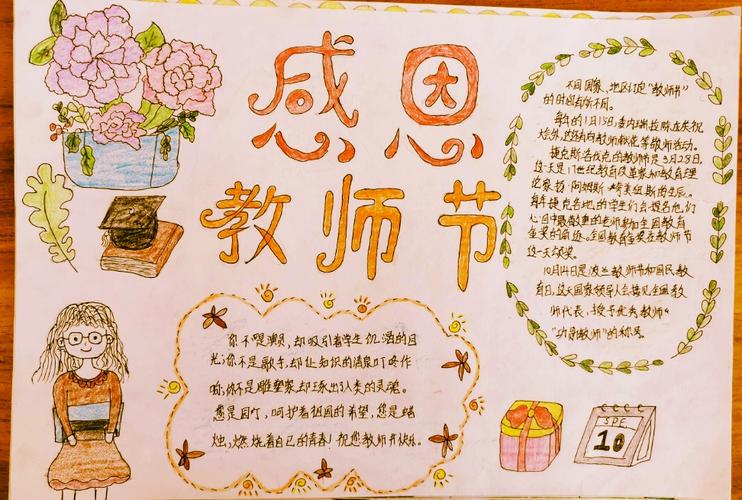 感恩
教师节
不同国家、地区订定"教师节"
的时间有所不同。
每年的1月15日,委内瑞拉除在庆祝
会外,还有向教师献花等教师活动。
捷克斯洛伐克的教师是3月28日,
这天是17世纪教育改革家和教育理
论家扬·阿姆斯·夸美纽斯的生辰。
每年捷克各地的学生们会提名他们
心目中最敬重的老师参加全国教育
金奖的角逐,全国教育金奖在教师节
这一天颁奖。
10月14日是波兰教师节和国民教
育日,这天国家领导人会接见全国教
师代表,授予优秀教师
"功勋教师"的称号。
你不是演员,却吸引着学生饥渴的目
光;你不是歌手,却让知识的清泉叮咚作
响,你不是雕塑家,却琢出人类的灵魂。
您是园丁,呵护着祖国的希望,您是蜡
烛,燃烧着自己的青春!祝您教师节快乐。
SPE
10